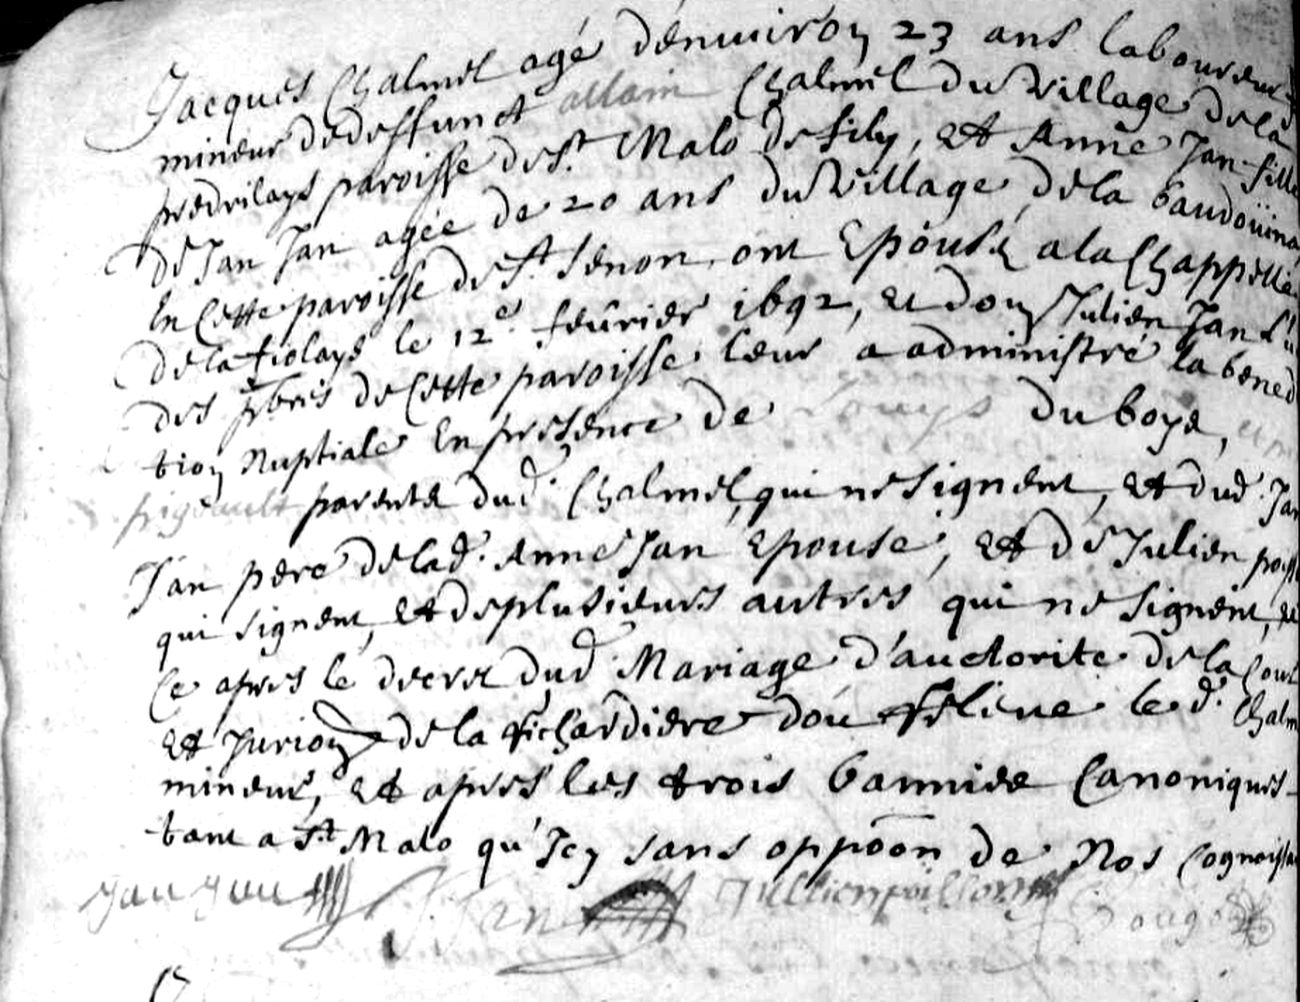 Jacques Chalmel agé denuiron 23 ans laboureur
mineur de deffunct allain Chalmel du village de la
predrilays paroisse de St Malo de fily, et Anne Jan fille
de Jan Jan agée de 20 ans du village de la baudoüina
en cette paroisse de St Senon, ont Epousé a la Chappelle
de la fiolays le 12e feûrier 1692, et dom Julien Jan L'u
des pbres de cette paroisse leur a administré la bened
tion Nuptiale En presence de Louys du boys, et
pigeault parents dud. Chalmel, qui ne signent, et dud. Jan
Jan pere de lad. Anne Jan Epouse, et de Julien
qui signent, et de plusieurs autres qui ne signent, et
Ce apres le decret dud Mariage d'auctorite de la Cour
et Jurion de la Richardiere dou releue le d. Chalm
mineur, et apres les trois bannies Canoniques
tant a St Malo qu'Jcy sans oppoon de Nos Cognoissa
jan jan J. Jan Jullien poillon